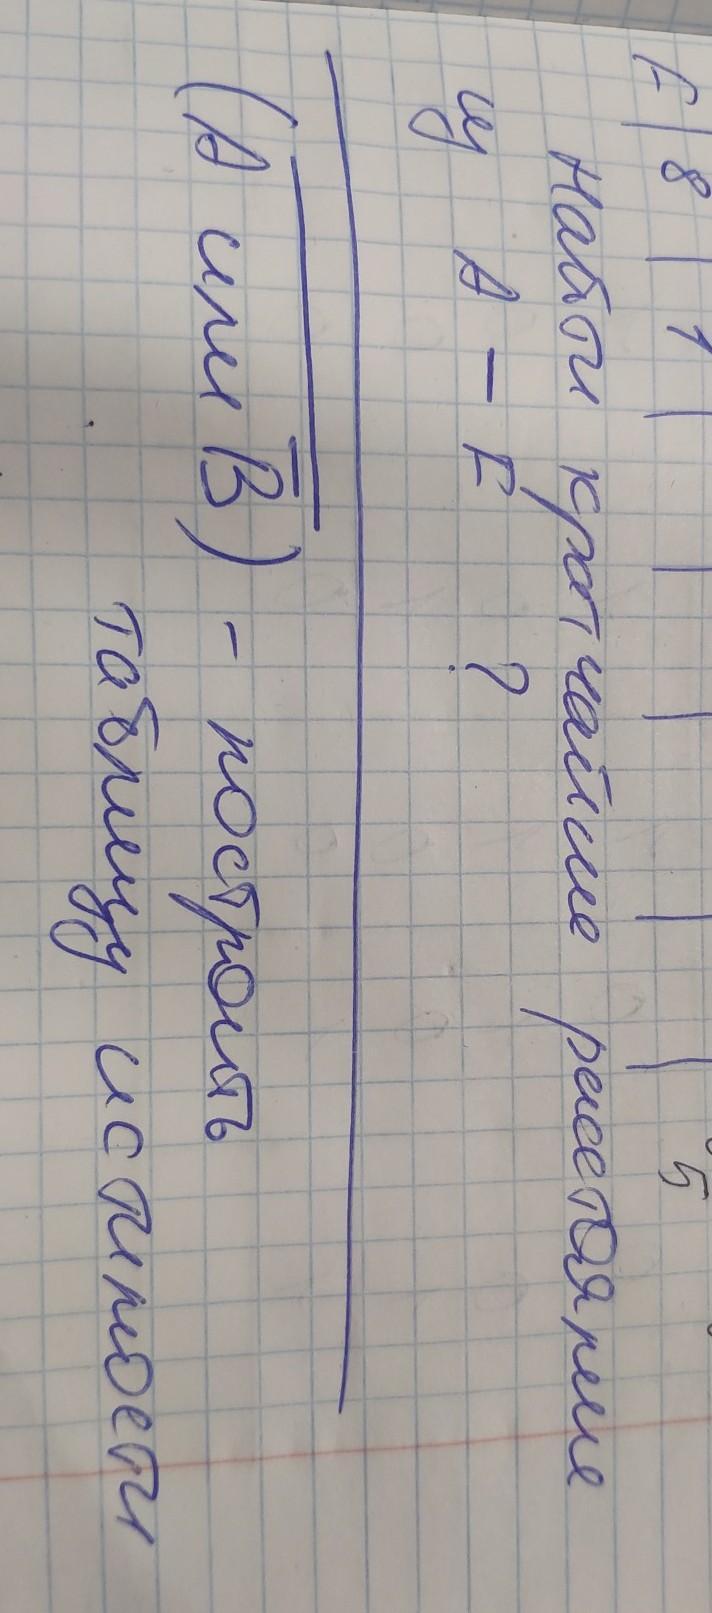 F 8 1 5
Найти кратчайшие расстояние
из A - F ?
(A или B̅)̅ - построить
таблицу истинности